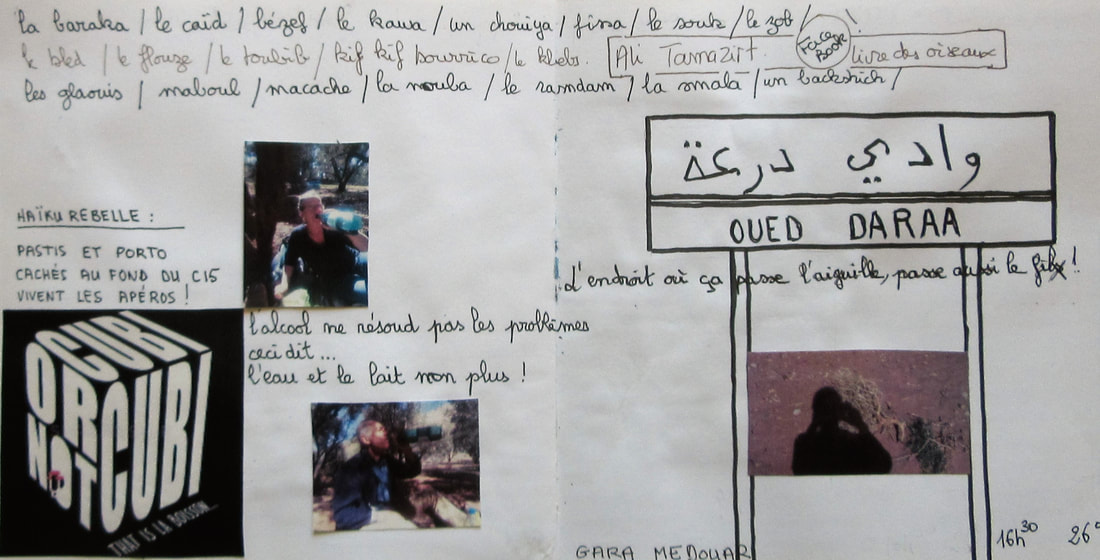 la baraka / le caïd / bézef / le kawa / un chouiya / fissa / le souk / le zob /
le bled / le flouze / le toubib / kif kif bourrico / le klebs. Ali Tamazirt. Face Book livre des oiseaux
les glaouis / maboul / macache / la nouba / le ramdam / la smala / un backshich /
وادي درعة
OUED DARAA
HAÏKU REBELLE :
PASTIS ET PORTO
CACHÉS AU FOND DU C15
VIVENT LES APÉROS !
L'endroit où ça passe l'aiguille, passe aussi le fil !
l'alcool ne résoud pas les problèmes
ceci dit ...
l'eau et le lait non plus !
CUBI
OR
NOT
CUBI
THAT IS LA BOISSON...
GARA MEDOUAR
16h30 26°